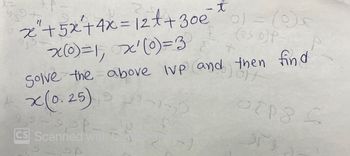 x"+5x'+4x=12t+30e^t
x(0)=1, x'(0)=3
solve the above IVP and then find
x(0.25)
CS Scanned with